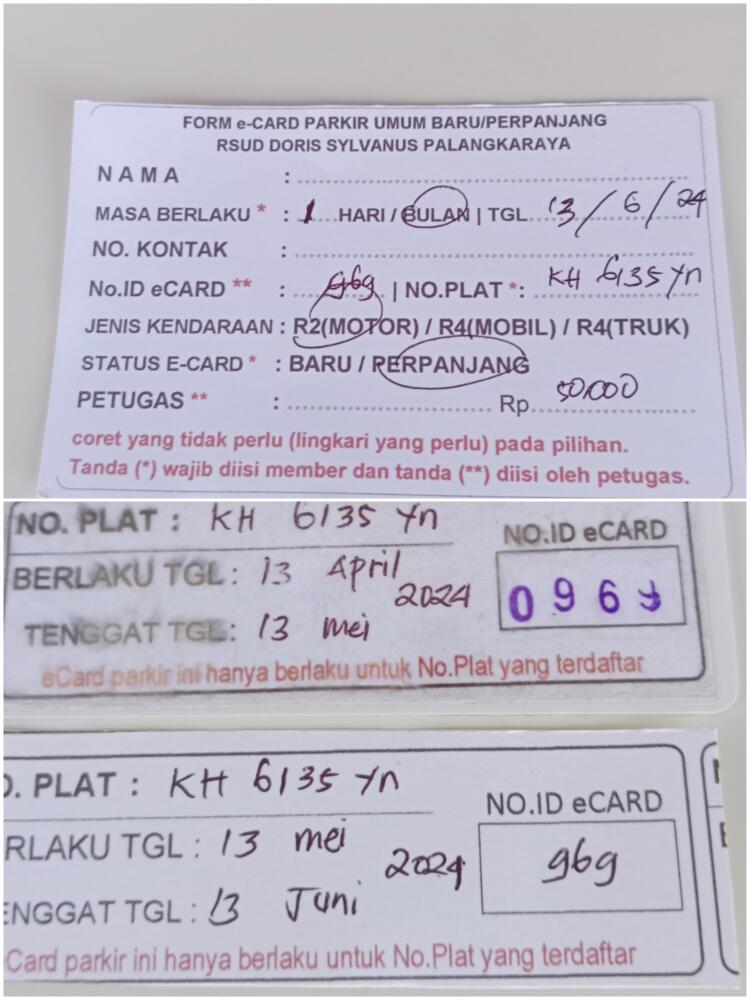 FORM e-CARD PARKIR UMUM BARU/PERPANJANG
RSUD DORIS SYLVANUS PALANGKARAYA
NAMA :
MASA BERLAKU * : 1 HARI / BULAN | TGL 13/6/24
NO. KONTAK :
No.ID eCARD ** : 969 | NO.PLAT *: KH 6135 Yn
JENIS KENDARAAN : R2(MOTOR) / R4(MOBIL) / R4(TRUK)
STATUS E-CARD * : BARU / PERPANJANG
PETUGAS ** : Rp 50.000
coret yang tidak perlu (lingkari yang perlu) pada pilihan.
Tanda (*) wajib diisi member dan tanda (**) diisi oleh petugas.
NO. PLAT : KH 6135 Yn
NO.ID eCARD
BERLAKU TGL : 13 April 2024
0969
TENGGAT TGL: 13 mei
eCard parkir ini hanya berlaku untuk No.Plat yang terdaftar
O. PLAT : KH 6135 Yn
NO.ID eCARD
RLAKU TGL : 13 mei 2024
969
ENGGAT TGL : 13 Juni
Card parkir ini hanya berlaku untuk No.Plat yang terdaftar